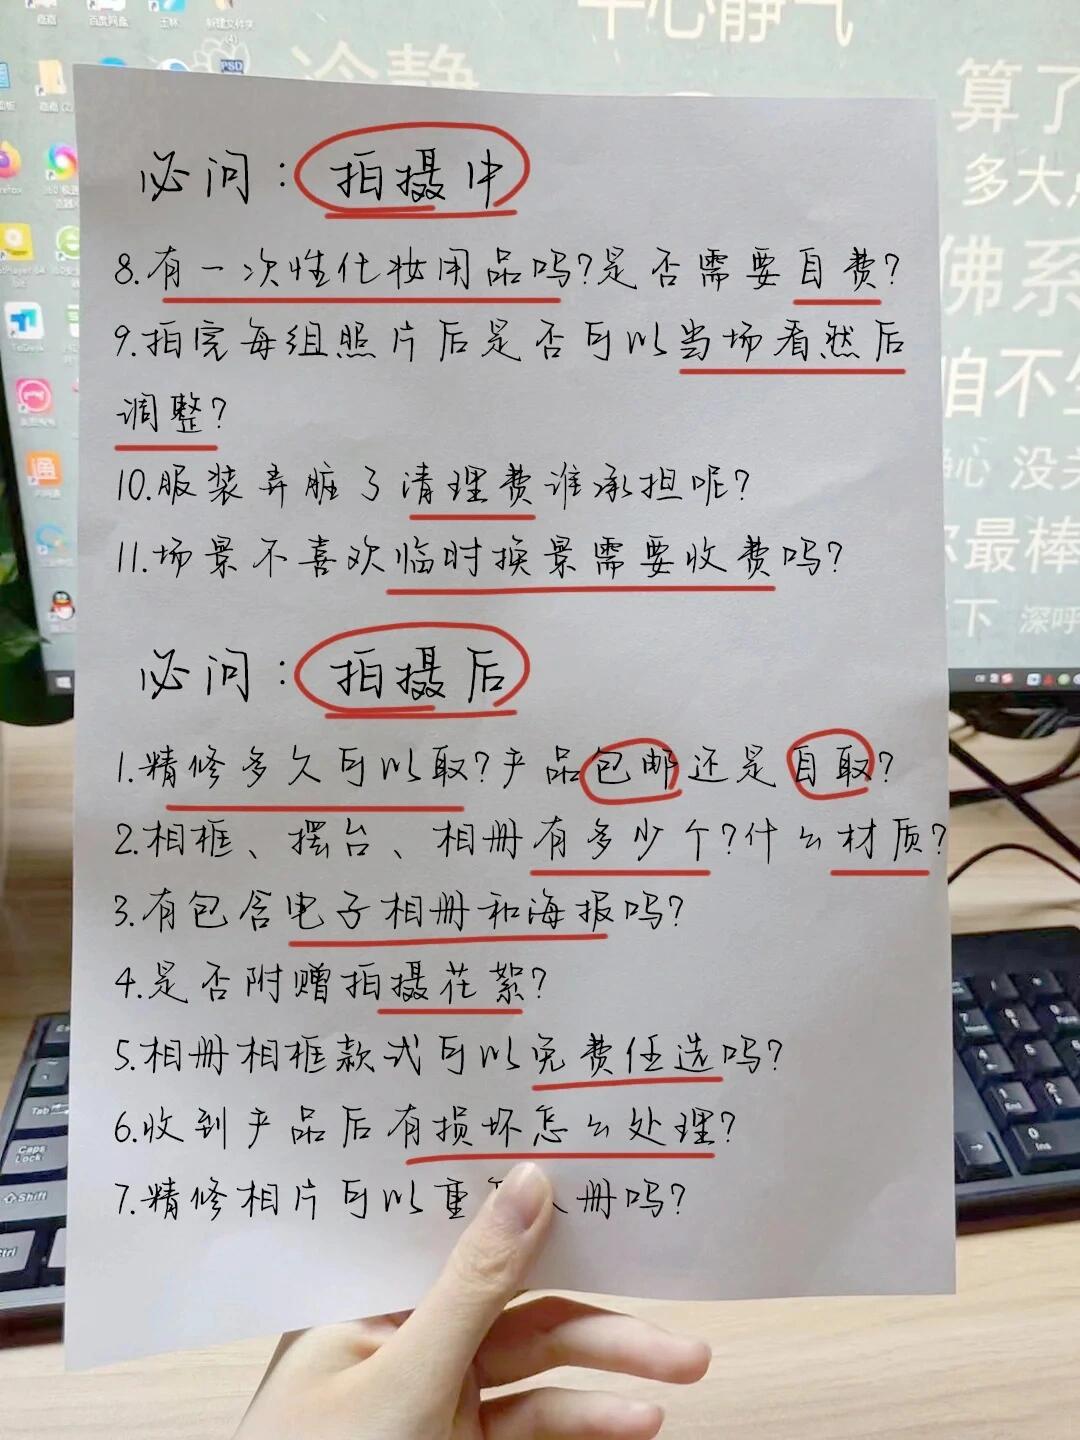 平心静气
冷静
算了
多大点
佛系
咱不生
静心 没关
你最棒
下 深呼
百度网盘
王林
新建文件夹
(4)
PSD
必问：拍摄中
8.有一次性化妆用品吗?是否需要自费?
9.拍完每组照片后是否可以当场看然后
调整?
10.服装弄脏了清理费谁承担呢?
11.场景不喜欢临时换景需要收费吗?
必问：拍摄后
1.精修多久可以取?产品包邮还是自取?
2.相框、摆台、相册有多少个?什么材质?
3.有包含电子相册和海报吗?
4.是否附赠拍摄花絮?
5.相册相框款式可以免费任选吗?
6.收到产品后有损坏怎么处理?
7.精修相片可以重 册吗?
Tab
Caps
Lock
Shift
Ctrl